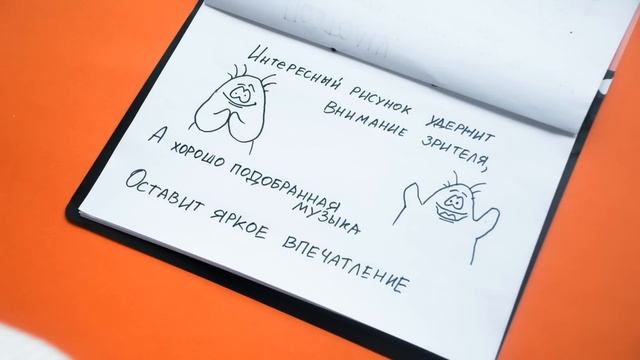 Интересный рисунок удержит
внимание зрителя,
А хорошо подобранная
музыка
Оставит яркое впечатление